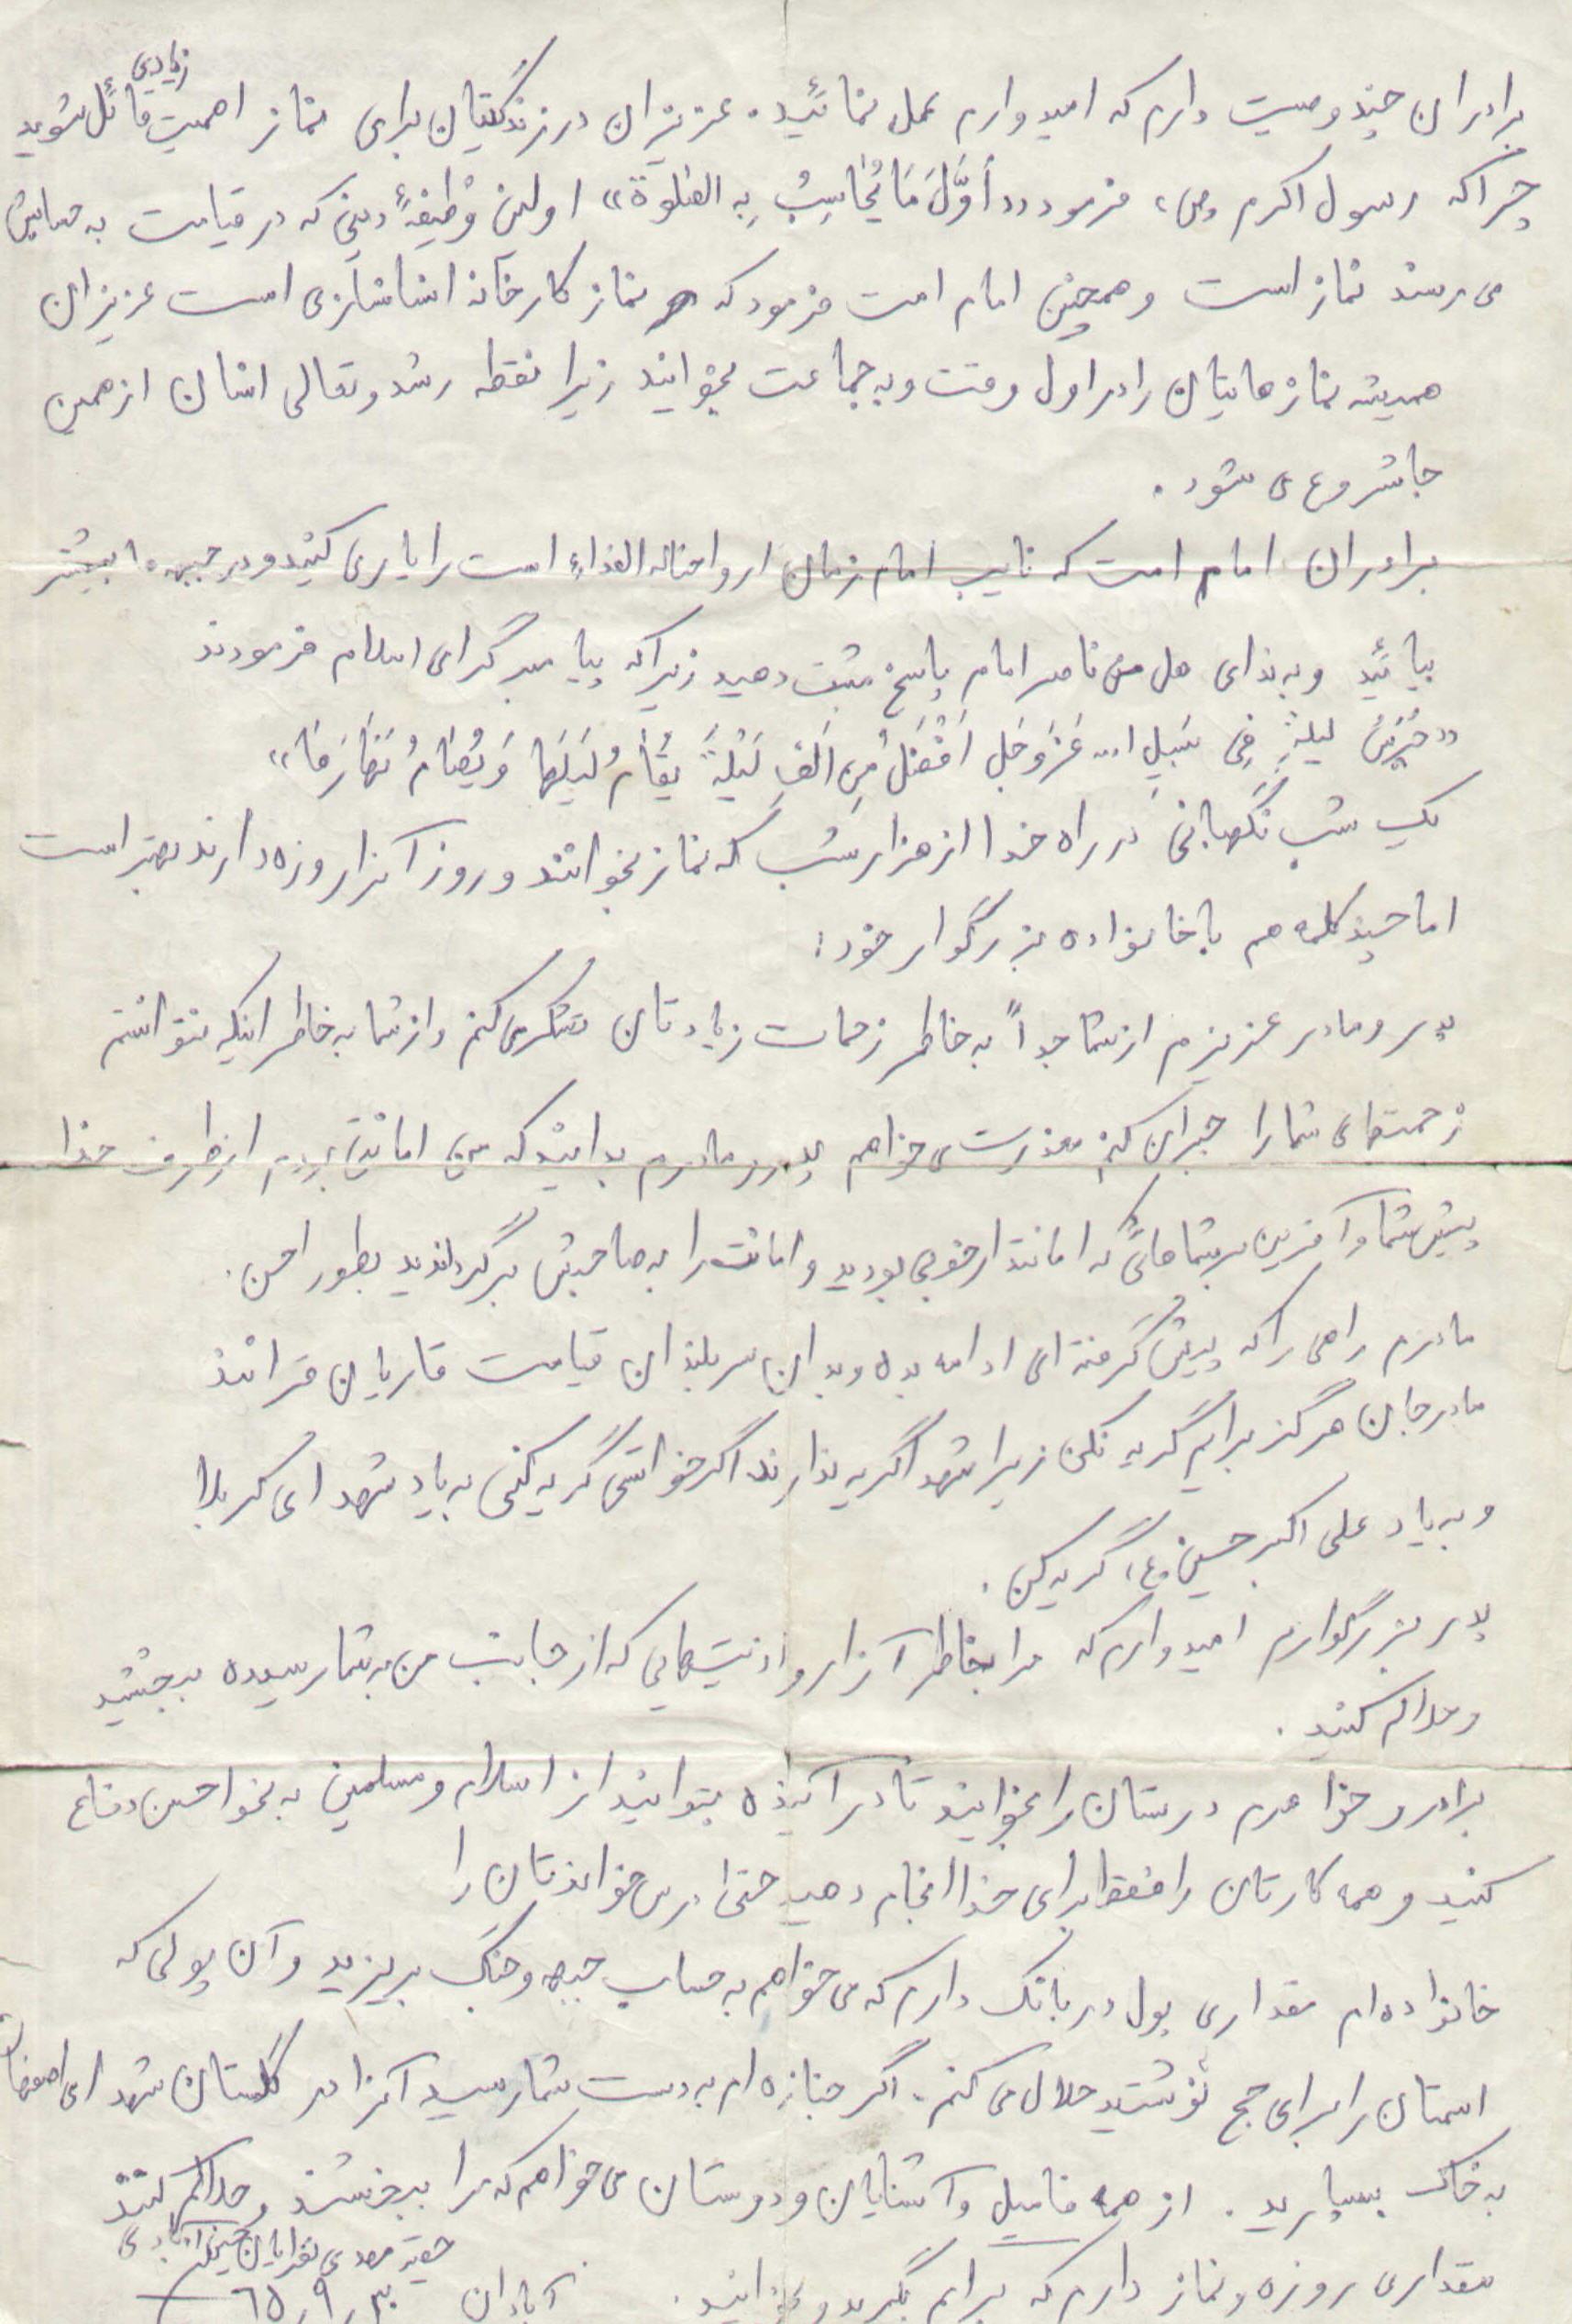 برادران چند وصیت دارم که امیدوارم عمل نمائید. عزیزان در زندگیتان برای نماز اهمیت زیادی قائل شوید
چرا که رسول اکرم (ص) فرمود «أَوَّلَ مَا یُحٰاسِبُ بِهِ الصَّلوة» اولین وظیفهٔ دینی که در قیامت به حسابش
می رسند نماز است و همچنین امام امت فرمود که نماز کارخانه انسانسازی است عزیزان
همیشه نمازهایتان را در اول وقت و به جماعت بخوانید زیرا نقطه رشد و تعالی انسان از همین
جا شروع می شود.
برادران امام امت که نایب امام زمان ارواحنا له الفداء است را یاری کنید و در جبهه ها بیشتر
بیائید و به ندای هل من ناصر امام پاسخ مثبت دهید زیرا که پیامبر گرامی اسلام فرمودند
«حَرَسُ لیلةٍ فِی سَبیلِ ا... عَزَّوَجَل اَفْضَلُ مِن اَلفِ لَیْلَةً یُقٰامُ لَیلَها وَ یُصٰامُ نَهٰارَها»
یک شب نگهبانی در راه خدا از هزار شب که نماز بخوانند و روز آنرا روزه دارند بهتر است
اما چند کلمه هم با خانواده بزرگوار خود:
پدر و مادر عزیزم از شما جداً به خاطر زحمات زیادتان تشکر می کنم و از شما به خاطر اینکه نتوانستم
زحمتهای شما را جبران کنم معذرت می خواهم پدر و مادرم بدانید که من امانتی بودم از طرف خدا
پیش شما و آفرین بر شماهائی که امانتدار خوبی بودید و امانت را به صاحبش برگرداندید بطور احسن.
مادرم راهی را که پیش گرفته ای ادامه بده و بدان سربلندان قیامت قاریان قرانند
مادر جان هرگز برایم گریه نکن زیرا شهدا گریه ندارند اگر خواستی گریه کنی به یاد شهدای کربلا
و به یاد علی اکبر حسین (ع) گریه کن.
پدر بزرگوارم امیدوارم که مرا بخاطر آزار و اذیتهایی که از جانب من به شما رسیده ببخشید
و حلالم کنید.
برادر و خواهرم درستان را بخوانید تا در آینده بتوانید از اسلام و مسلمین به نحو احسن دفاع
کنید و همه کارتان را فقط برای خدا انجام دهید حتی درس خواندنتان را
خانواده ام مقداری پول در بانک دارم که می خواهم به حساب جبهه و جنگ بریزید و آن پولی که
اسمتان را برای حج نوشتید حلال می کنم. اگر جنازه ام به دست شما رسید آنرا در گلستان شهدای اصفهان
به خاک بسپارید. از همه فامیل و آشنایان و دوستان می خواهم که مرا ببخشند و حلالم کنند
مقداری روزه و نماز دارم که برایم بگیرید و بخوانید.
حقیر مهدی
آبادان ۶۵٫۹٫۳۰